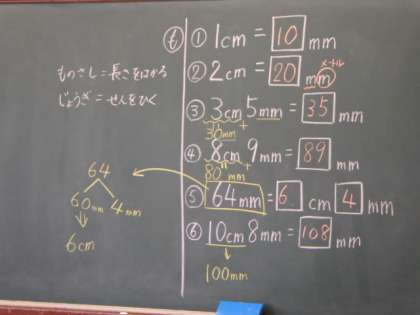 ものさし=長さをはかる
じょうぎ=せんをひく
64
60mm 4mm
6cm
⑥ ① 1cm = 10 mm
メートル
② 2cm = 20 mm
③ 3cm 5mm = 35 mm
30mm +
④ 8cm 9mm = 89 mm
80mm +
⑤ 64mm = 6 cm 4 mm
⑥ 10cm 8mm = 108 mm
100mm